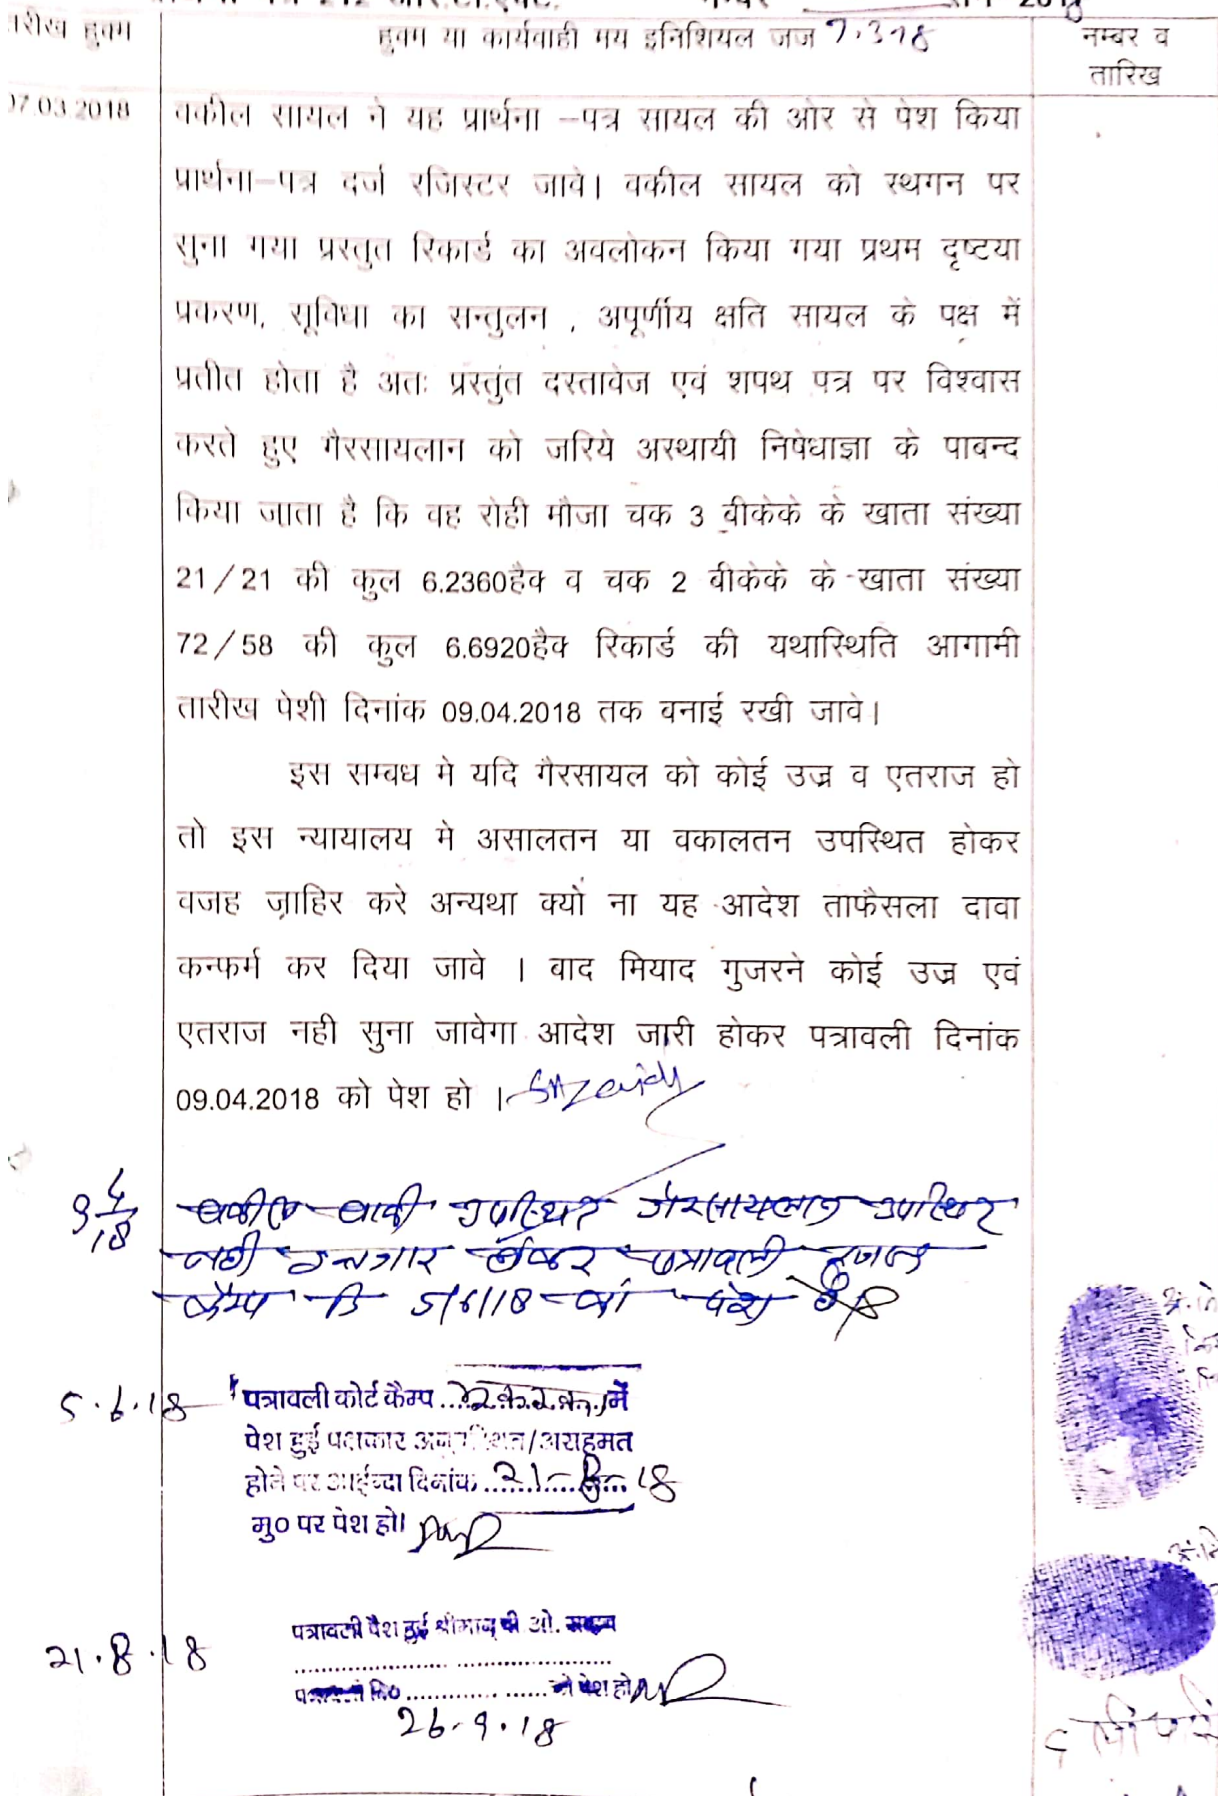 212 आर.टी.एक्ट. नम्बर सन 2018
तारीख हुक्म
हुक्म या कार्यवाही मय इनिशियल जज 7.3.18
नम्बर व
तारिख
07.03.2018
वकील सायल ने यह प्रार्थना –पत्र सायल की ओर से पेश किया
प्रार्थना–पत्र दर्ज रजिस्टर जावे। वकील सायल को स्थगन पर
सुना गया प्रस्तुत रिकार्ड का अवलोकन किया गया प्रथम दृष्टया
प्रकरण, सूविधा का सन्तुलन , अपूर्णीय क्षति सायल के पक्ष में
प्रतीत होता है अतः प्रस्तुंत दस्तावेज एवं शपथ पत्र पर विश्वास
करते हुए गैरसायलान को जरिये अस्थायी निषेधाज्ञा के पाबन्द
किया जाता है कि वह रोही मौजा चक 3 बीकेके के खाता संख्या
21/21 की कुल 6.2360हैक व चक 2 बीकेके के खाता संख्या
72/58 की कुल 6.6920हैक रिकार्ड की यथास्थिति आगामी
तारीख पेशी दिनांक 09.04.2018 तक बनाई रखी जावे।
इस सम्बध मे यदि गैरसायल को कोई उज्र व एतराज हो
तो इस न्यायालय मे असालतन या वकालतन उपस्थित होकर
वजह ज़ाहिर करे अन्यथा क्यो ना यह आदेश ताफैसला दावा
कन्फर्म कर दिया जावे । बाद मियाद गुजरने कोई उज्र एवं
एतराज नही सुना जावेगा आदेश जारी होकर पत्रावली दिनांक
09.04.2018 को पेश हो ।
9/4/18
वकील वादी उपस्थित गैरसायलान उपस्थित
नही इन्तजार होकर पत्रावली
कैम्प दि 5/6/18 को पेश हो
5.6.18
पत्रावली कोर्ट कैम्प ........ में
पेश हुई पक्षकार अनुपस्थित/असहमत
होने पर आईन्दा दिनांक 21-8-18
मु० पर पेश हो।
21.8.18
पत्रावली पेश हुई श्रीमान् पी ओ.
........................ ........................
............... को पेश हो
26.9.18